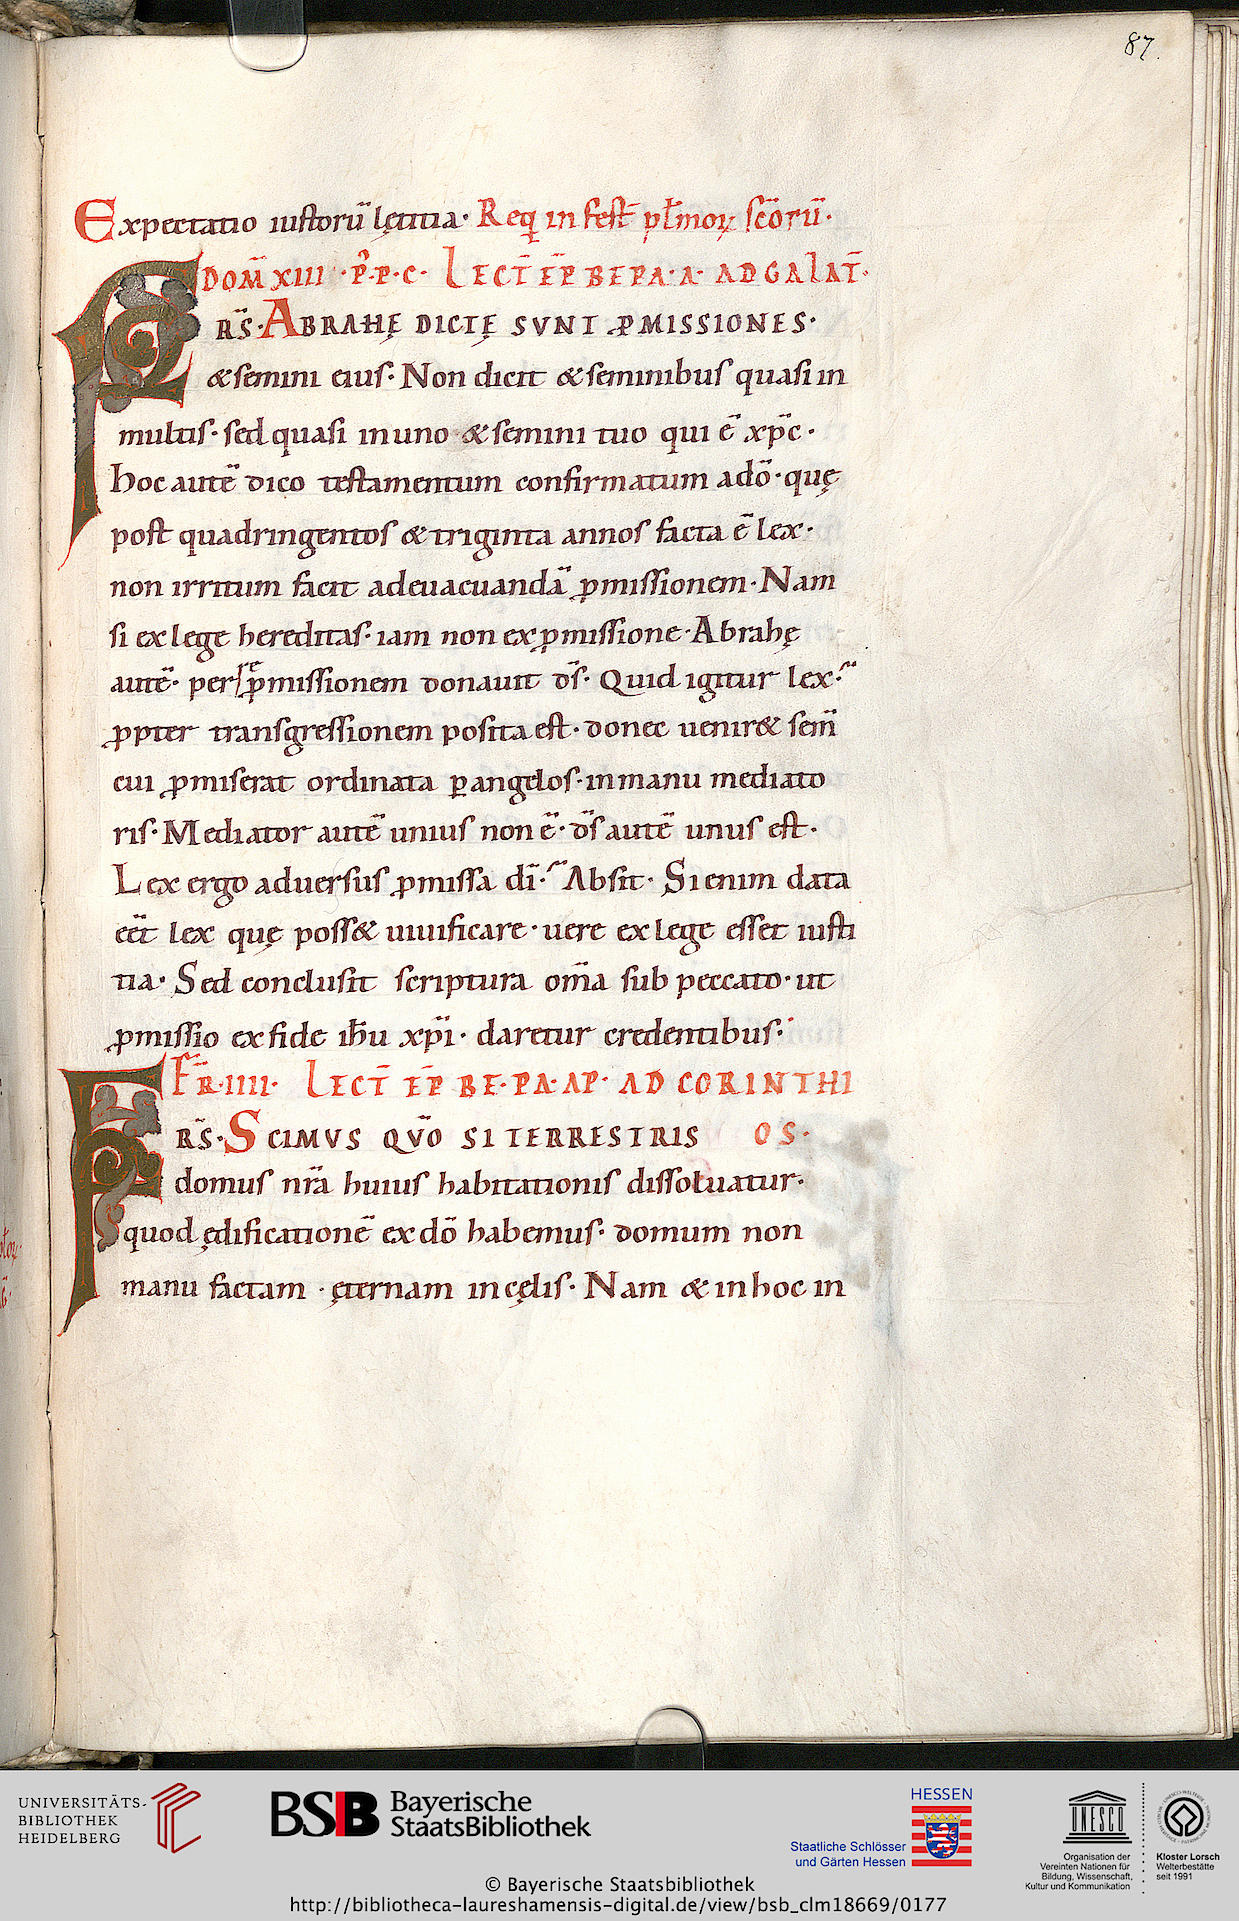 87.
Expectatio iustorū lętitia· Req̄ in fest̄ pl̄imoꝝ sc̄orū·
DOM̄ XIII ·P̄·P·C· LECT̄ EP̄ BE PA·A· AD GALAT̄·
FRS̄·ABRAHĘ DICTĘ SVNT ꝓMISSIONES·
& semini eius· Non dicit & seminibus quasi in
multis· sed quasi in uno & semini tuo qui ē xp̄c·
hoc autē dico testamentum confirmatum a dō· quę
post quadringentos & triginta annos facta ē lex·
non irritum facit ad euacuandā ꝓmissionem· Nam
si ex lege hereditas· iam non ex ꝓmissione· Abrahę
autē· per re ꝓmissionem donauit ds̄· Quid igitur lex·
ꝓpter transgressionem posita est· donec uenir& sem̄
cui ꝓmiserat ordinata ꝑ angelos· in manu mediato
ris· Mediator autē unius non ē· ds̄ autē unus est·
Lex ergo aduersus ꝓmissa dī· Absit· Si enim data
eēt lex quę poss& uiuificare· uere ex lege esset iusti
tia· Sed conclusit scriptura om̄a sub peccato· ut
ꝓmissio ex fide ih̄u xp̄i· daretur credentibus·
FR̄·IIII· LECT̄ EP̄ BE·PA·AP· AD CORINTHI
FRS̄·SCIMVS QVŌ SI TERRESTRIS OS·
domus nr̄a huius habitationis dissoluatur·
quod ędificationē ex dō habemus· domum non
manu factam· ęternam in cęlis· Nam & in hoc in
UNIVERSITÄTS-
BIBLIOTHEK
HEIDELBERG
BSB Bayerische
StaatsBibliothek
HESSEN
Staatliche Schlösser
und Gärten Hessen
UNESCO
Organisation der
Vereinten Nationen für
Bildung, Wissenschaft,
Kultur und Kommunikation
Kloster Lorsch
Welterbestätte
seit 1991
© Bayerische Staatsbibliothek
http://bibliotheca-laureshamensis-digital.de/view/bsb_clm18669/0177